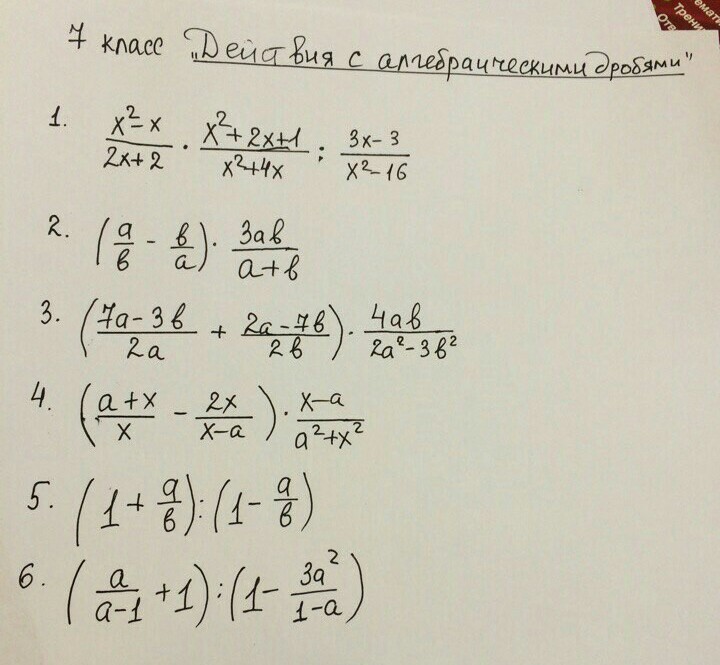 емати
Трени
Отв
7 класс „Действия с алгебраическими дробями"
1. (x²-x)/(2x+2) · (x²+2x+1)/(x²+4x) : (3x-3)/(x²-16)
2. (a/в - в/a) · 3aв/(a+в)
3. ((7a-3в)/2a + (2a-7в)/2в) · 4aв/(2a²-3в²)
4. ((a+x)/x - 2x/(x-a)) · (x-a)/(a²+x²)
5. (1+a/в):(1-a/в)
6. (a/(a-1)+1):(1-3a²/(1-a))